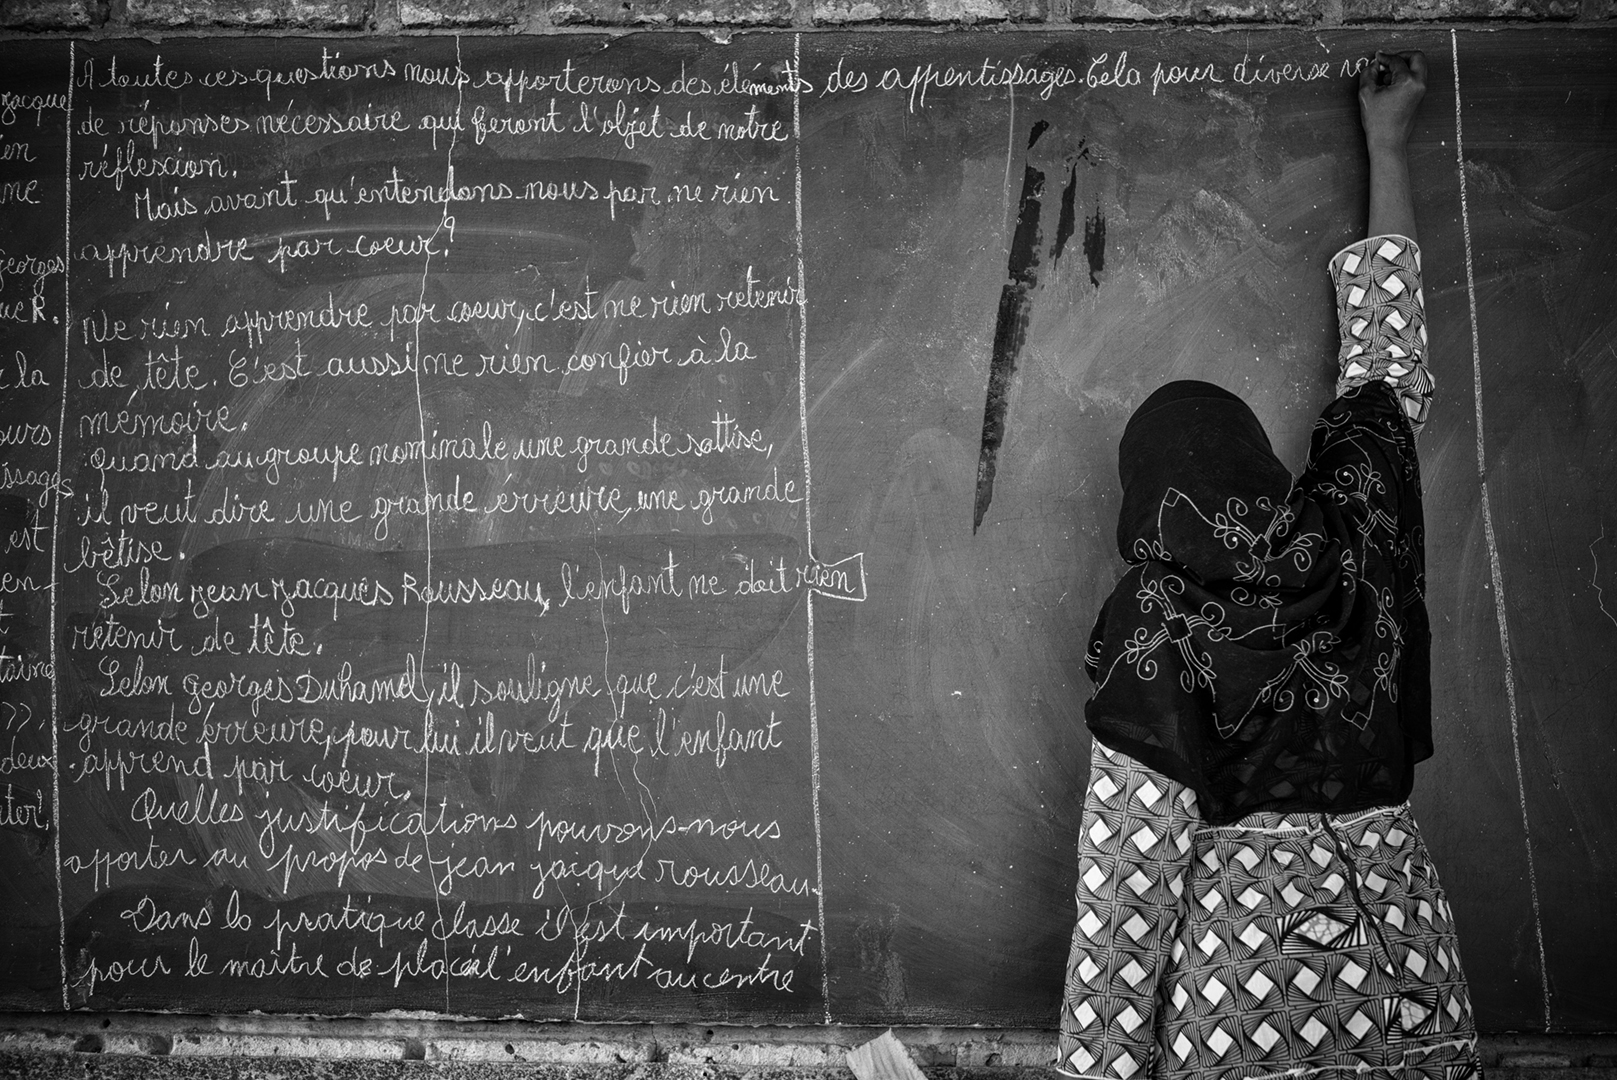 jacque
en
ne
georges
ue R.
la
ours
issages
est
en-
t
taire
>>.
deux
ter!
A toutes ces questions nous apporterons des éléments
de réponses nécessaire qui feront l'objet de notre
réflexion.
Mais avant qu'entendons-nous par ne rien
apprendre par coeur?
Ne rien apprendre par coeur, c'est ne rien retenir
de tête. C'est aussi ne rien confier à la
mémoire.
Quand au groupe nominale une grande sottise,
il veut dire une grande érreure, une grande
bêtise.
Selon jean jacques Rousseau, l'enfant ne doit rien
retenir de tête.
Selon georges Duhamel, il souligne que c'est une
grande érreure, pour lui il veut que l'enfant
apprend par coeur.
Quelles justifications pouvons-nous
apporter au propos de jean jacque rousseau.
Dans la pratique classe il est important
pour le maître de placé l'enfant au centre
des apprentissages. Cela pour diverse